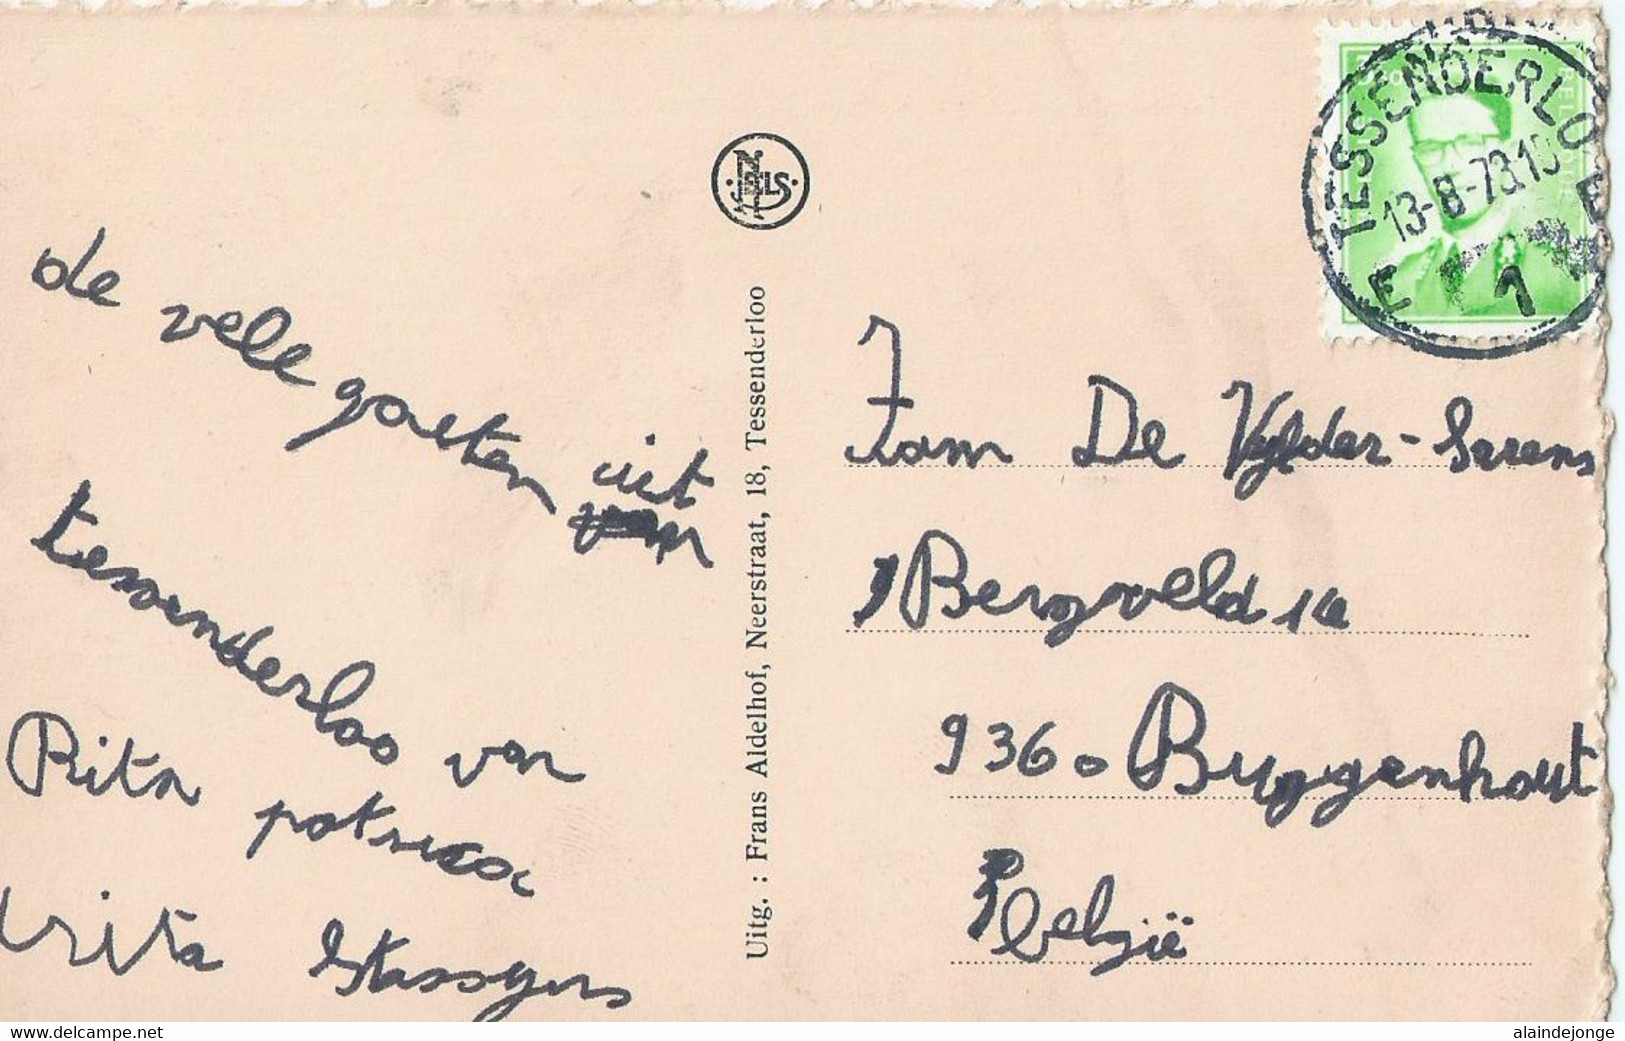 de vele goeten uit
tessenderloo van
Rita patricia
krista Stassyns
NELS
Uitg. : Frans Aldelhof, Neerstraat, 18, Tessenderloo
BELGIQUE
TESSENDERLO
13-8-73.10
E 1 E
Fam De Vylder-Sarens
Bergveld 1
9360 Buggenhout
België
www.delcampe.net
alaindejonge